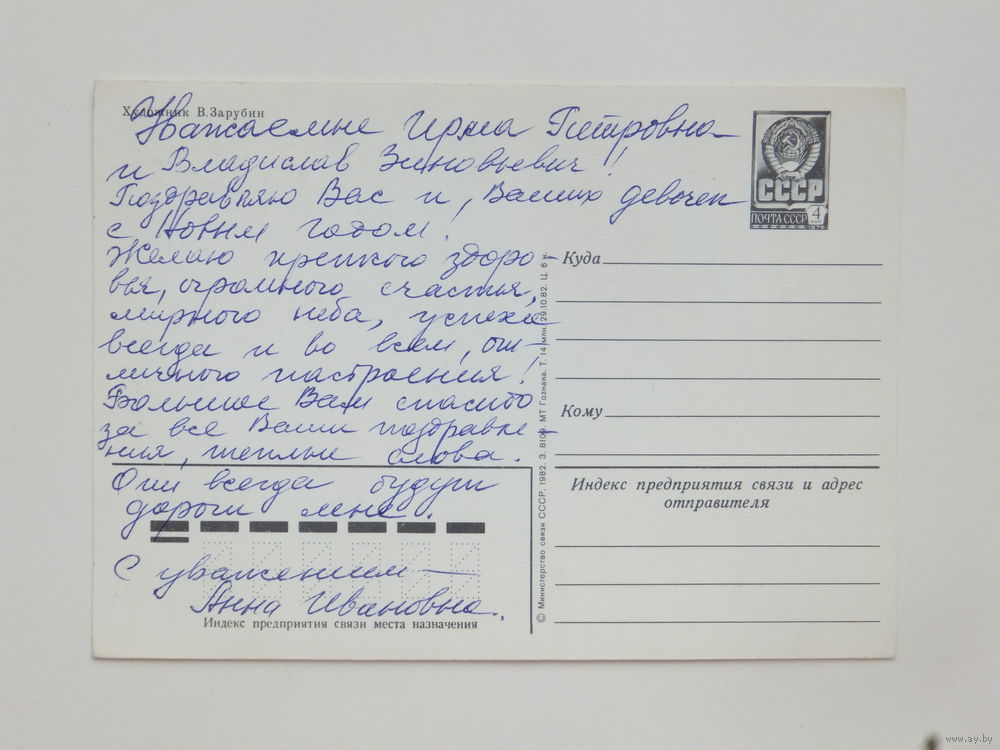 Художник В.Зарубин
Уважаемые Ирма Петровна
и Владислав Зиновьевич!
Поздравляю Вас и, Ваших девочек
с Новым годом.
Желаю крепкого здоро-
вья, огромного счастья,
мирного неба, успеха
всегда и во всем, от-
личного настроения!
Большое Вам спасибо
за все Ваши поздравле-
ния, теплые слова.
Они всегда будут
дороги мне.
С уважением —
Анна Ивановна.
Индекс предприятия связи места назначения
© Министерство связи СССР, 1982. З. 8109. МТ Гознака. Т. 14 млн. 29.10.82. Ц. 6 к.
СССР
ПОЧТА СССР 4
1976
Куда
Кому
Индекс предприятия связи и адрес
отправителя
www.ay.by